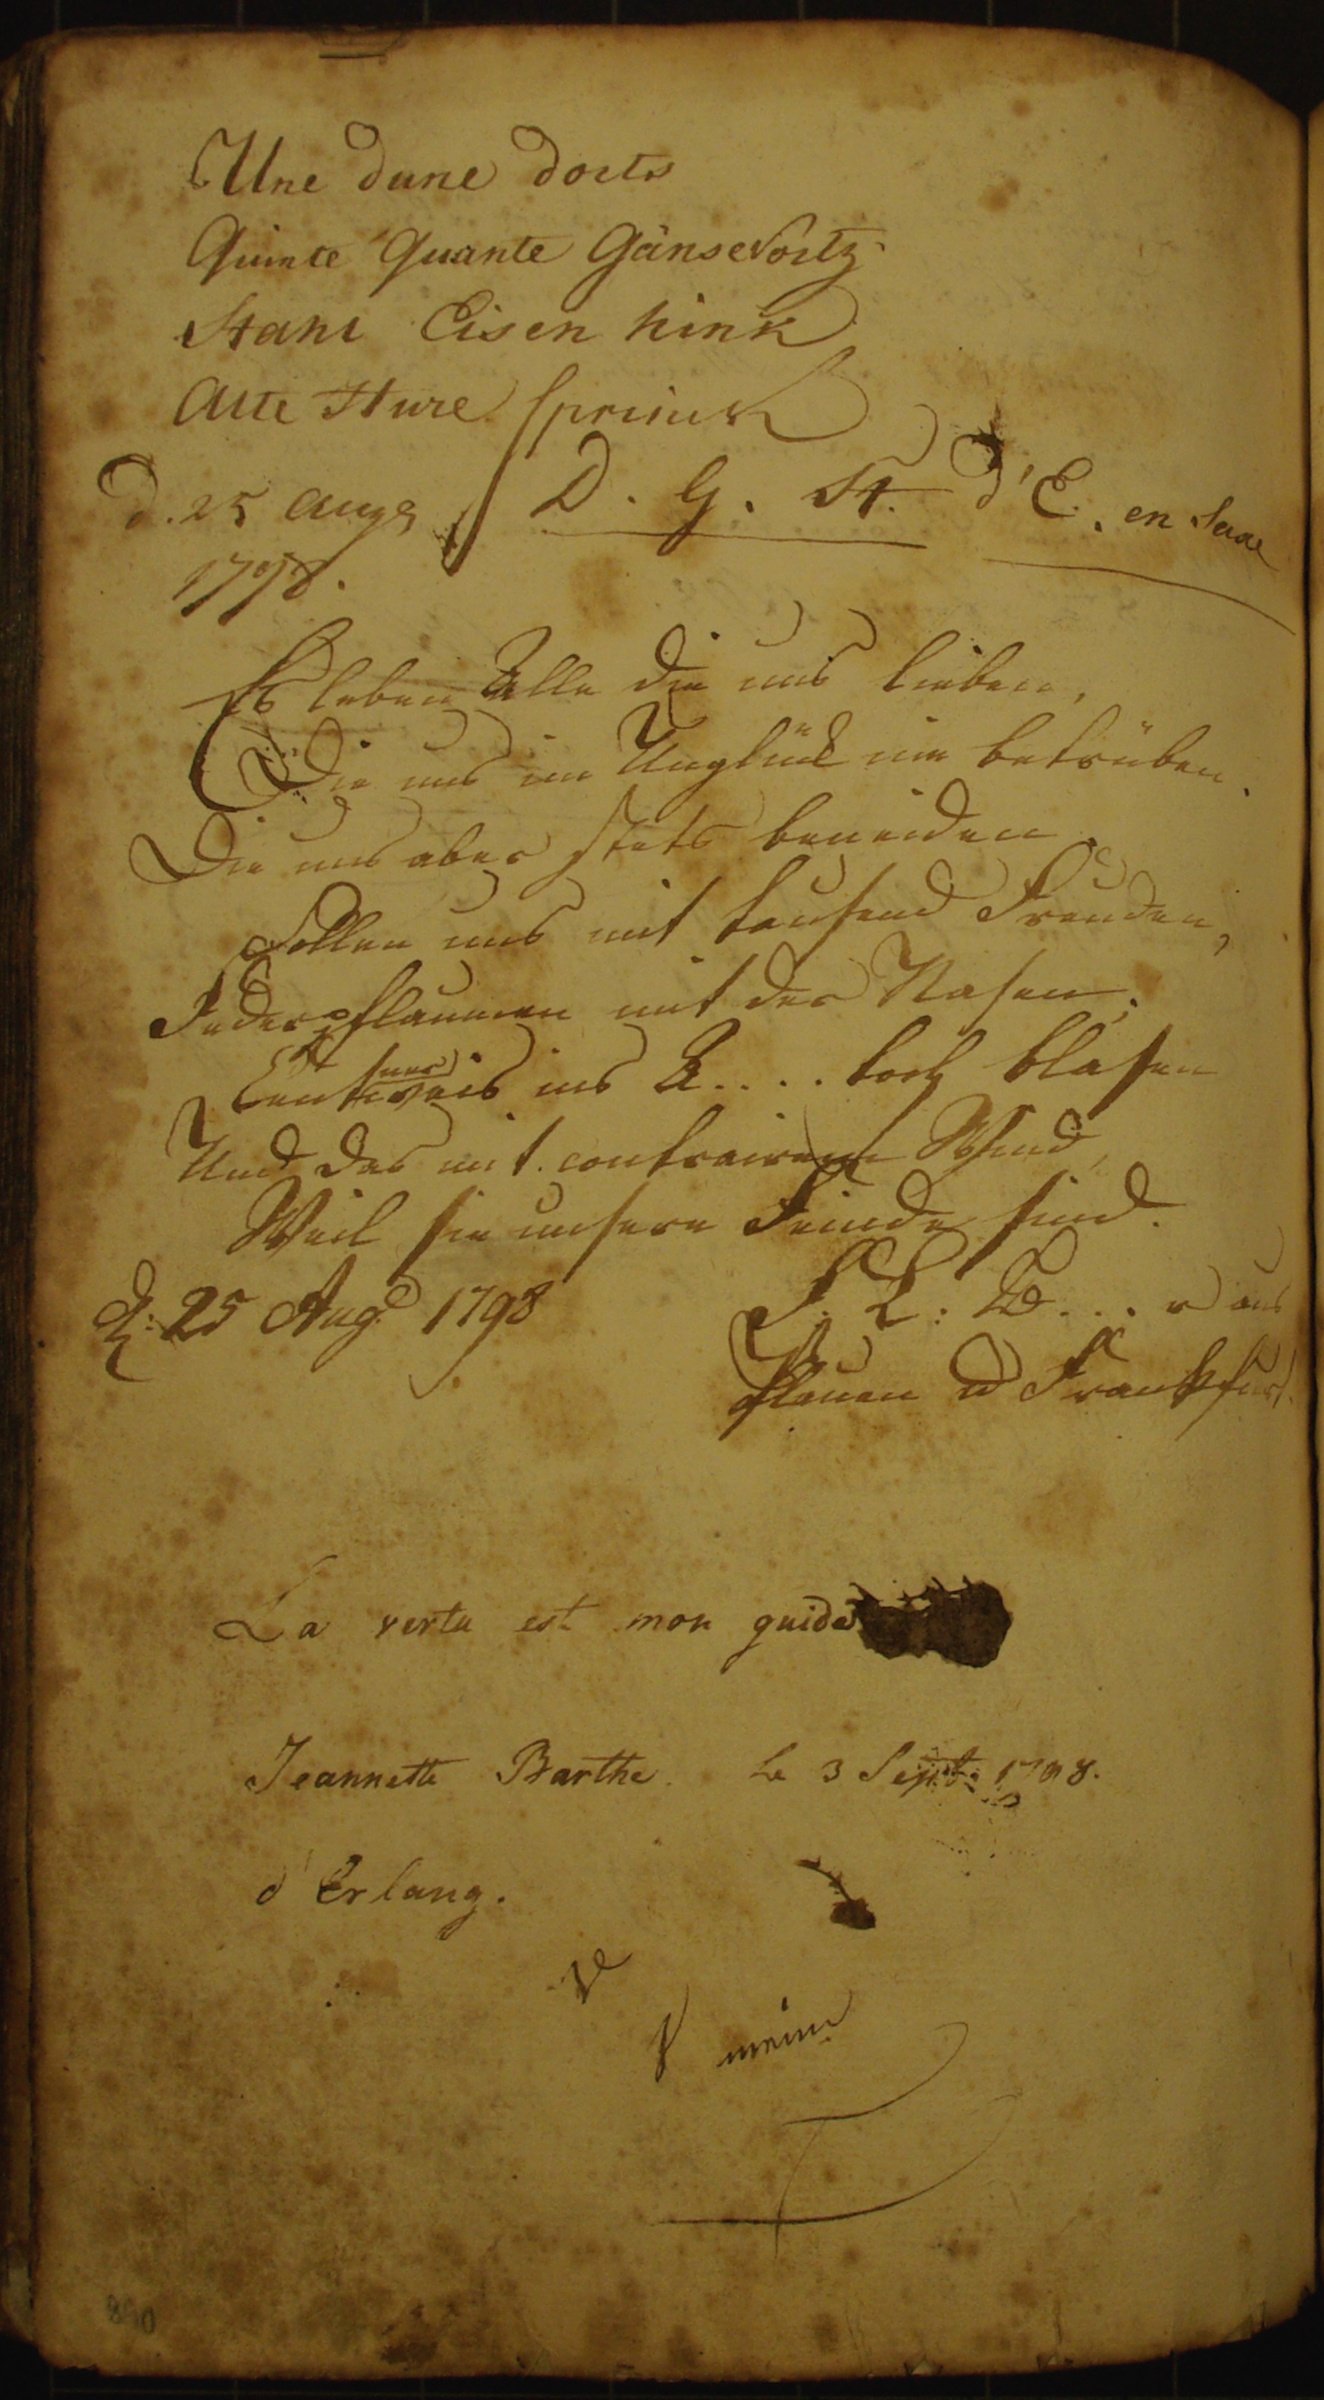 Une dune dorts
Quinte Quante Gänsevortz
Stani Eisen hink
Alte Hure sprink
d. 25 Aug
1798.
D. G. St. d'E. en Saxe
Es leben Alle die uns lieben,
Die uns im Unglück nie betrüben.
Die uns aber stets beneiden
Sollen uns mit tausend Freuden,
Federpflaumen mit der Nasen,
Centnerweis ins A.... loch blasen
Und das mit contrairem Wind,
Weil sie unsere Feinde sind.
d: 25 Aug. 1798
F. L: B... r aus
Plauen u Frankfurt.
La vertu est mon guide
Jeannette Barthe. Le 3 Sept. 1798.
d'Erlang.
mein